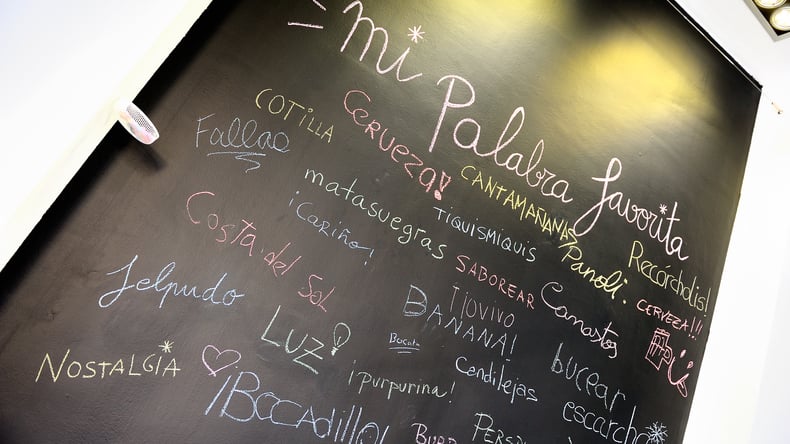 mi Palabra favorita
COTILLA
Cerveza!
Fallas
CANTAMAÑANAS
matasuegras
TIQUISMIQUIS
¡Cariño!
Panoli.
Recórcholis!
Costa del Sol
SABOREAR
Canastos
CERVEZA!!!
felpudo
TIOVIVO
BANANA!
LUZ
Candilejas
bucear
NOSTALGIA
¡purpurina!
escarcha
¡Bocadillo!